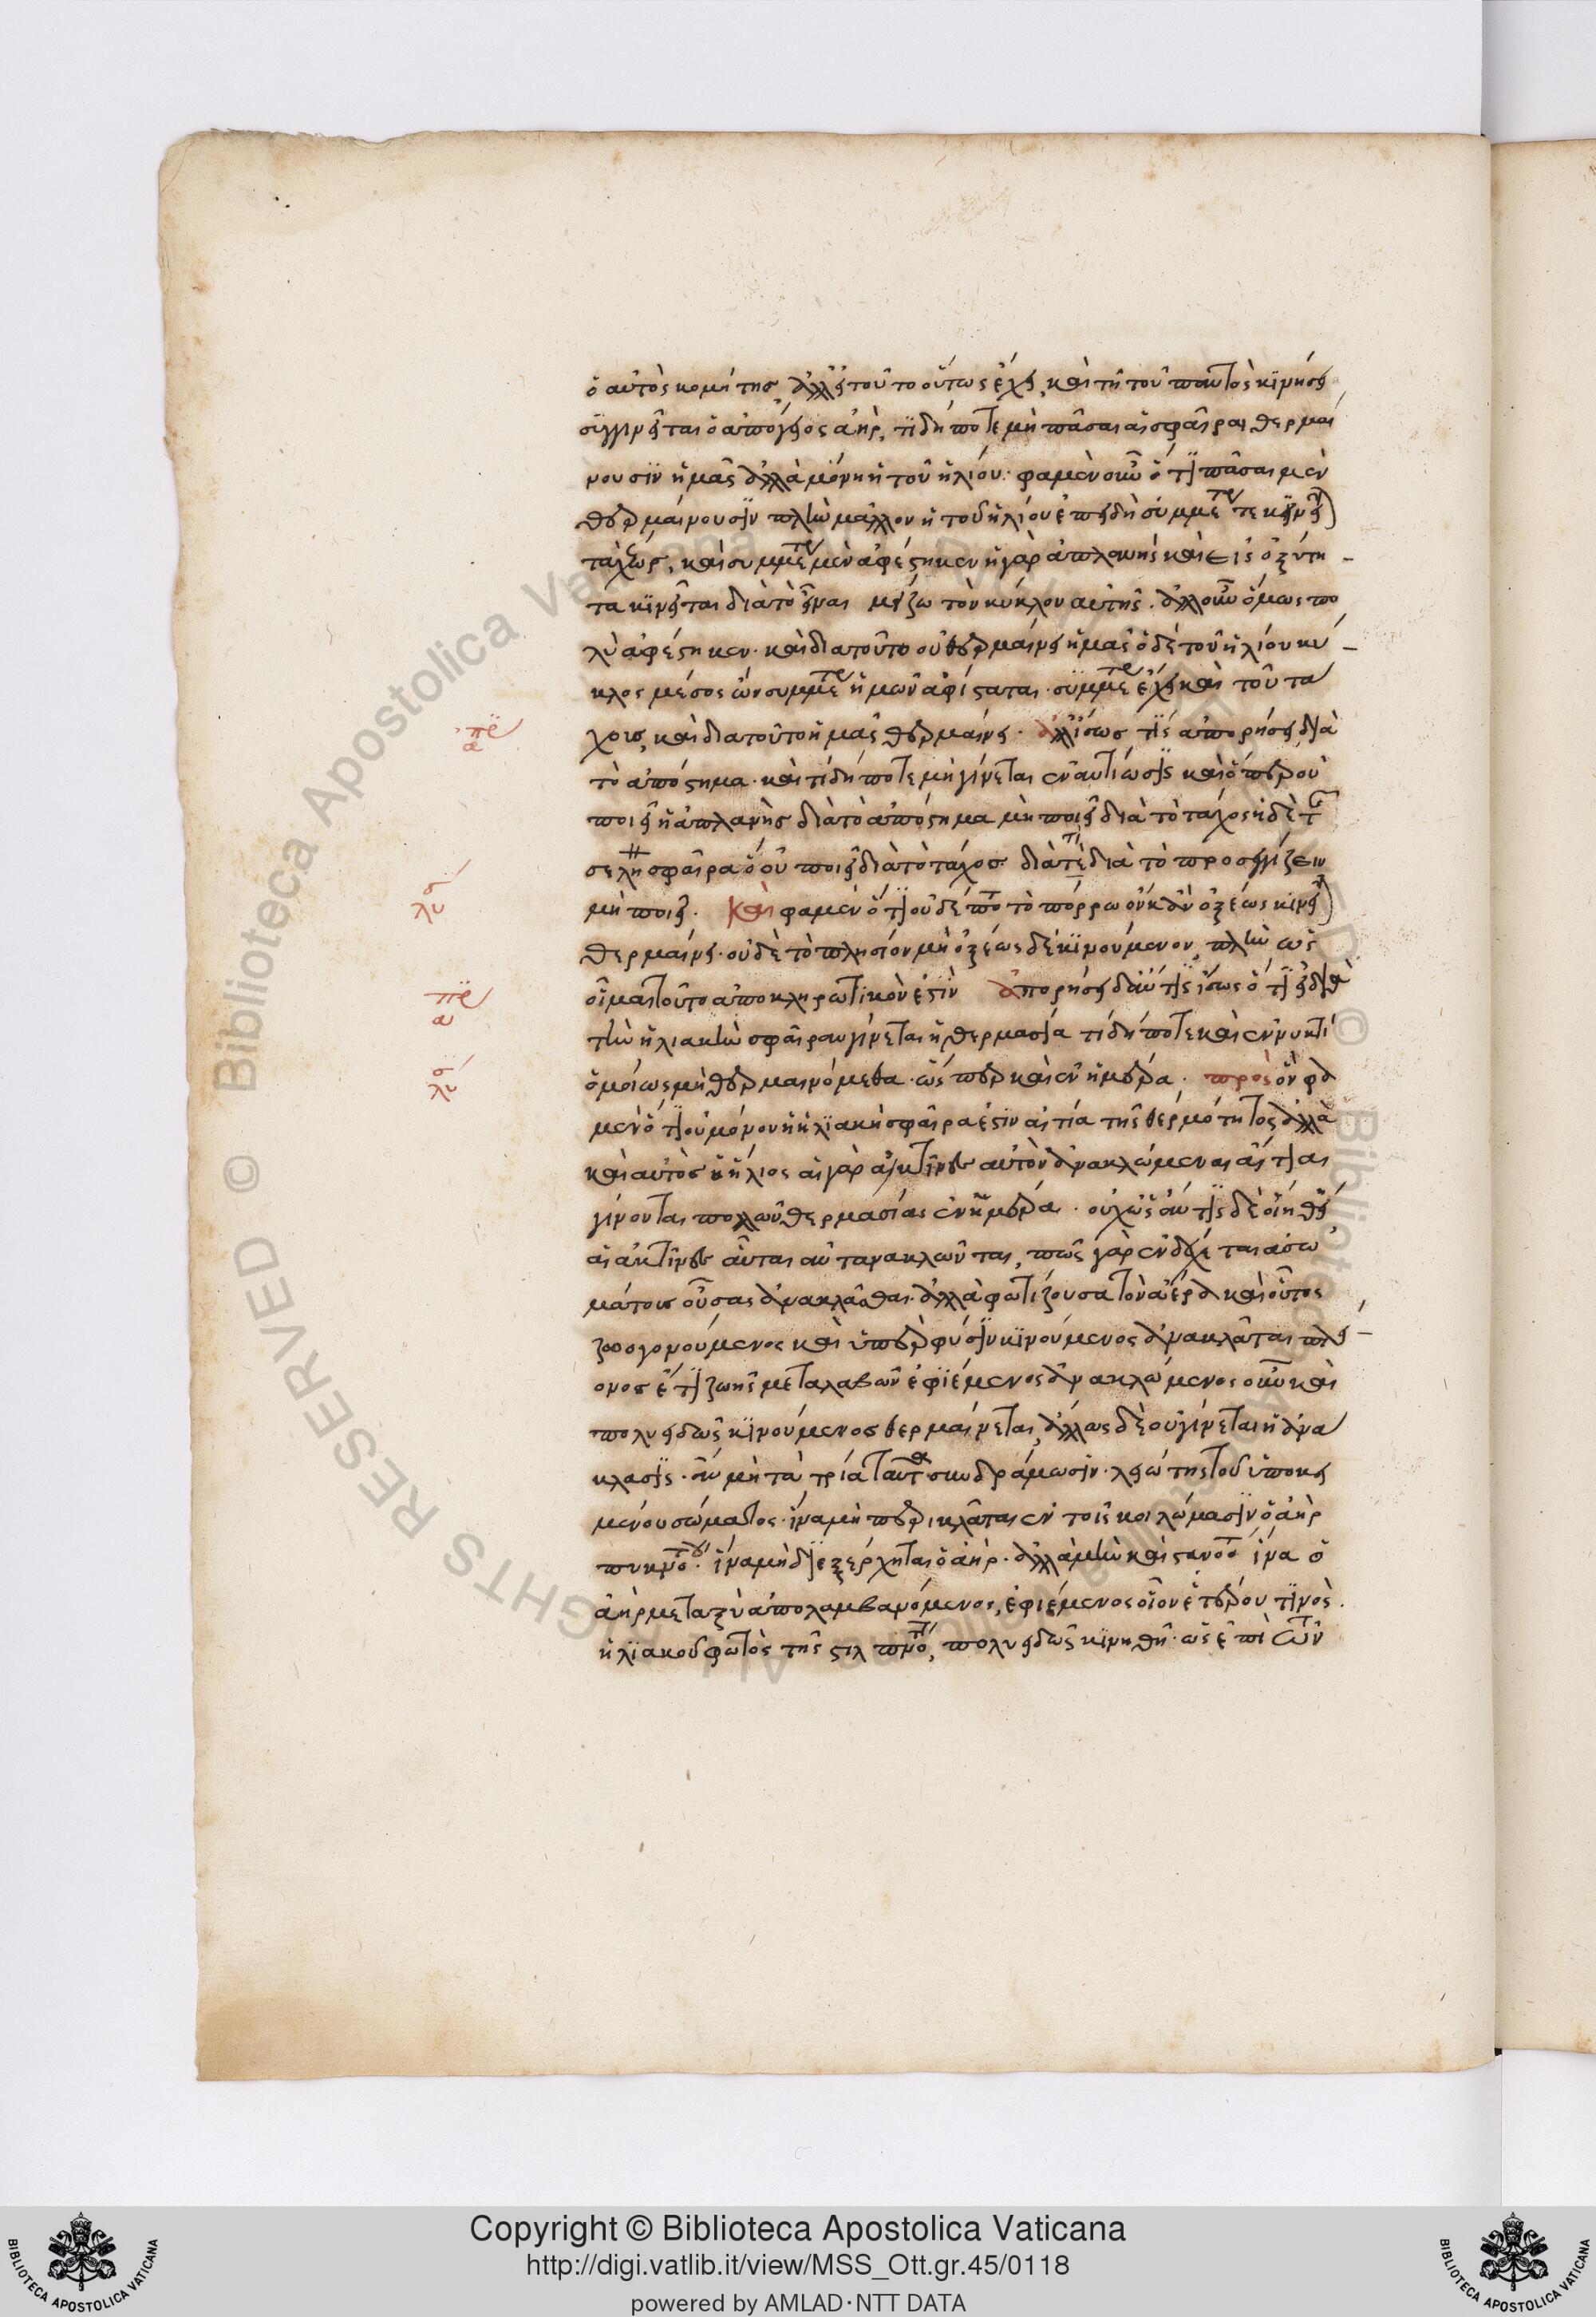 ὁ αὐτὸς κομήτης, ἀλλ' εἰ τοῦτο οὕτως ἔχει, καὶ τῇ τοῦ παντὸς κινήσει
συγκινεῖται ὁ ἀπόγειος ἀήρ, τί δή ποτε μὴ πᾶσαι αἱ σφαῖραι θερμαί
νουσιν ἡμᾶς ἀλλὰ μόνη ἡ τοῦ ἡλίου· φαμὲν οὖν ὅτι πᾶσαι μὲν
θερμαίνουσιν πλὴν μᾶλλον ἡ τοῦ ἡλίου ἐπειδὴ συμμε τε κινεῖ
καὶ συμμε μὲν ἀφέστηκεν ἡ γὰρ ἀπλανὴς καὶ εἰς ὀξύτη
τα κινεῖται διὰ τὸ εἶναι μείζω τὸν κύκλον αὐτῆς. ἀλλ' οὖν ὅμως πο
λὺ ἀφέστηκεν· καὶ διὰ τοῦτο οὐ θερμαίνει ἡμᾶς ὁ δὲ τοῦ ἡλίου κύ
κλος μέσος ὢν συμμε ἡμῶν ἀφίσταται· συμμε ἔχει καὶ τοῦ τά
χους, καὶ διὰ τοῦτο ἡμᾶς θερμαίνει· ἀλλ' ἴσως τις ἀπορήσει διὰ
τὸ ἀπόστημα· καὶ τί δή ποτε μὴ γίνεται ἐναντίωσις καὶ ὅπερ οὐ
ποιεῖ ἡ ἀπλανὴς διὰ τὸ ἀπόστημα μὴ ποιεῖ διὰ τὸ τάχος ἡ δὲ τ
σελη σφαῖρα ὃ οὐ ποιεῖ διὰ τὸ τάχος διατὶ διὰ τὸ προσεγγίζειν
μὴ ποιεῖ. Καὶ φαμὲν ὅτι οὐδέπο τὸ πόρρω οὐκ ἂν ὀξέως κινεῖ
θερμαίνει· οὐδὲ τὸ πλησίον μὴ ὀξέως δὲ κινούμενον, πλὴν ὡς
οἶμαι τοῦτο ἀποκληρωτικὸν ἐστὶν ἀπορήσει δ' ἄν τις ἴσως ὅτι εἰ διὰ
τὴν ἡλιακὴν σφαῖραν γίνεται ἡ θερμασία τί δή ποτε καὶ ἐν νυκτὶ
ὁμοίως μὴ θερμαινόμεθα· ὥσπερ καὶ ἐν ἡμέρα· πρὸς ὃν φα
μὲν ὅτι οὐ μόνον ἡ ἡλιακὴ σφαῖρα ἐστιν αἰτία τῆς θερμότητος ἀλλὰ
καὶ αὐτὸς ὁ ἥλιος αἱ γὰρ ἀκτῖνες αὐτοῦ ἀνακλώμεναι αἴτιαι
γίνονται πολλῶν θερμασίας ἐν ἡμέρα· οὐχ ὡς ἄν τις δὲ οἰηθεί
αἱ ἀκτῖνες αὗται αὐταὶ ἀνακλῶνται, πῶς γὰρ ἐνδέχεται ἀσω
μάτους οὔσας ἀνακλᾶσθαι· ἀλλὰ φωτίζουσαι τὸν ἀέρα καὶ οὗτος
ζωογονούμενος καὶ ὑπὲρ φύσιν κινούμενος ἀνακλᾶται πλεί
ονος ἔτι ζωῆς μεταλαβεῖν ἐφιέμενος ἀνακλώμενος οὖν καὶ
πολυειδῶς κινούμενος θερμαίνεται, ἄλλως δὲ οὐ γίνεται ἡ ἀνά
κλασις· ἂν μὴ τὰ τρία ταῦτα συνδράμωσιν· λειότης τοῦ ὑποκει
μένου σώματος· ἵνα μὴ περικλᾶται ἐν τοῖς κοιλώμασιν ὁ ἀὴρ
πυκνο· ἵνα μὴ διεξέρχηται ὁ ἀήρ· ἀλλὰ μὴν καὶ στεγνο ἵνα ὁ
ἀὴρ μεταξὺ ἀπολαμβανόμενος, ἐφιέμενος οἷον ἑτέρου τινὸς
ἡλιακοῦ φωτὸς τῆς στιλπνο, πολυειδῶς κινηθῇ· ὡς ἐπὶ τῶν
ἀπ
λύσ
ἀπ
λύσ
Copyright © Biblioteca Apostolica Vaticana
http://digi.vatlib.it/view/MSS_Ott.gr.45/0118
powered by AMLAD·NTT DATA
BIBLIOTECA APOSTOLICA VATICANA
BIBLIOTECA APOSTOLICA VATICANA
© Biblioteca Apostolica Vaticana ALL RIGHTS RESERVED